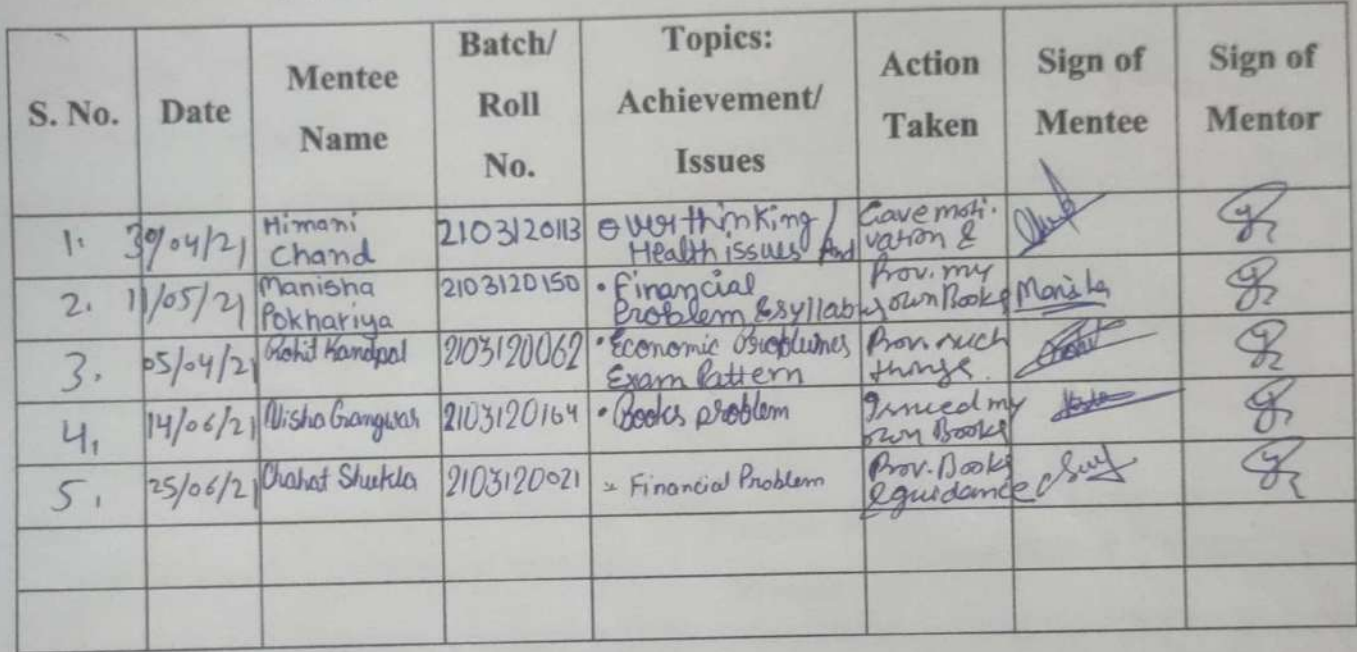 S. No. Date Mentee Name Batch/ Roll No. Topics: Achievement/ Issues Action Taken Sign of Mentee Sign of Mentor
1. 30/04/21 Himani Chand 2103120113 Overthinking / Health issues And Gave moti. vation &
2. 11/05/21 Manisha Pokhariya 2103120150 • Financial Problem & syllabus Prov. my own Books Manisha
3. 05/04/21 Rohit Kandpal 2103120062 • Economic Problumes Exam Pattern Prov. such things.
4. 14/06/21 Nisha Gangwar 2103120164 • Books problem Issued my own Books
5. 25/06/21 Chahat Shukla 2103120021 Financial Problem Prov. Books & guidance